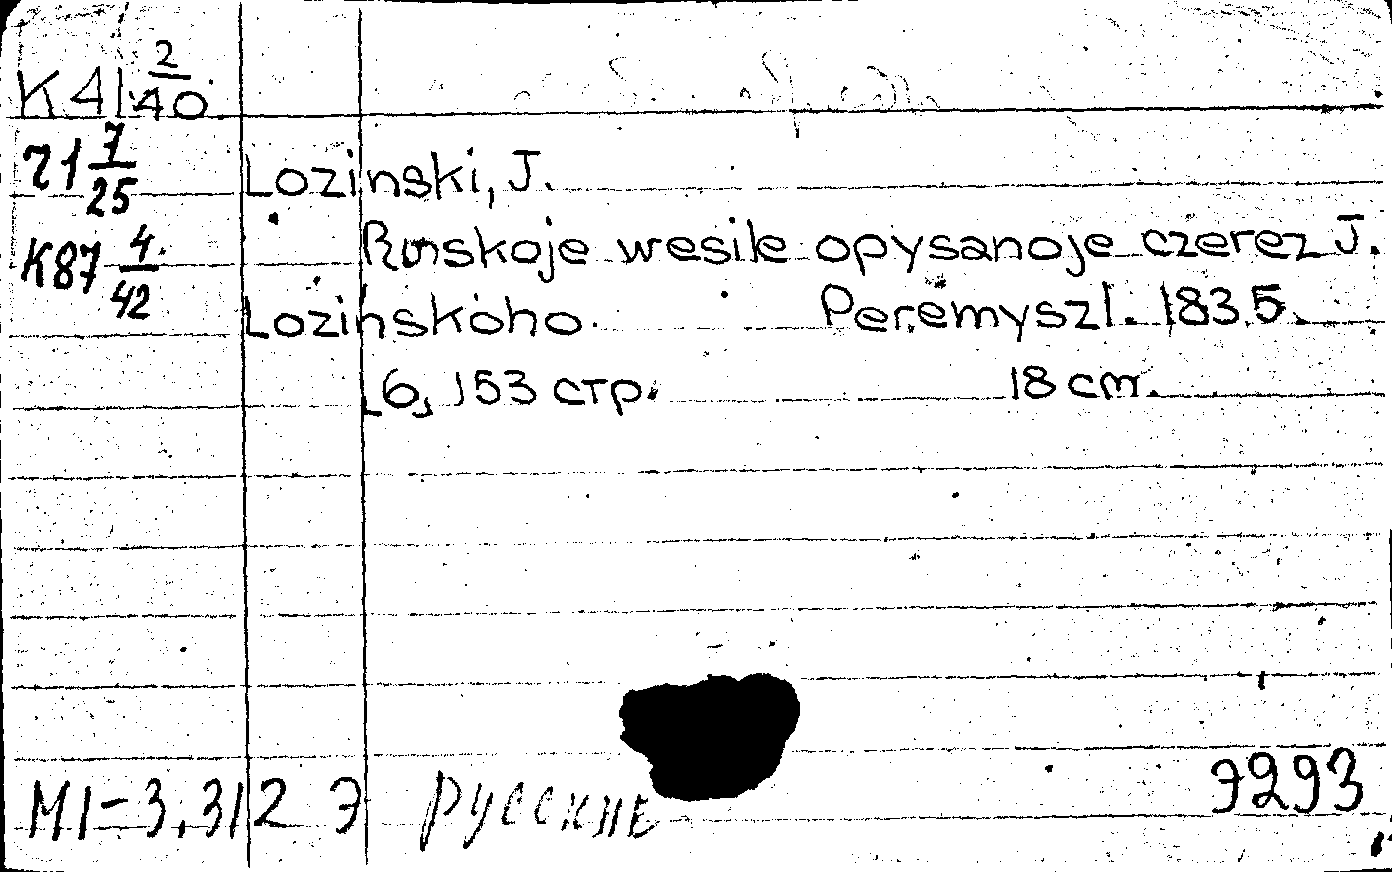 K 41 2/40
21 7/25
K87 4/42
Lozinski, J.
Ruskoje wesile opysanoje czerez J.
Lozinskoho. Peremyszl. 1835.
6, 153 стр. 18 cm.
М1-3,312 Э русские
9293